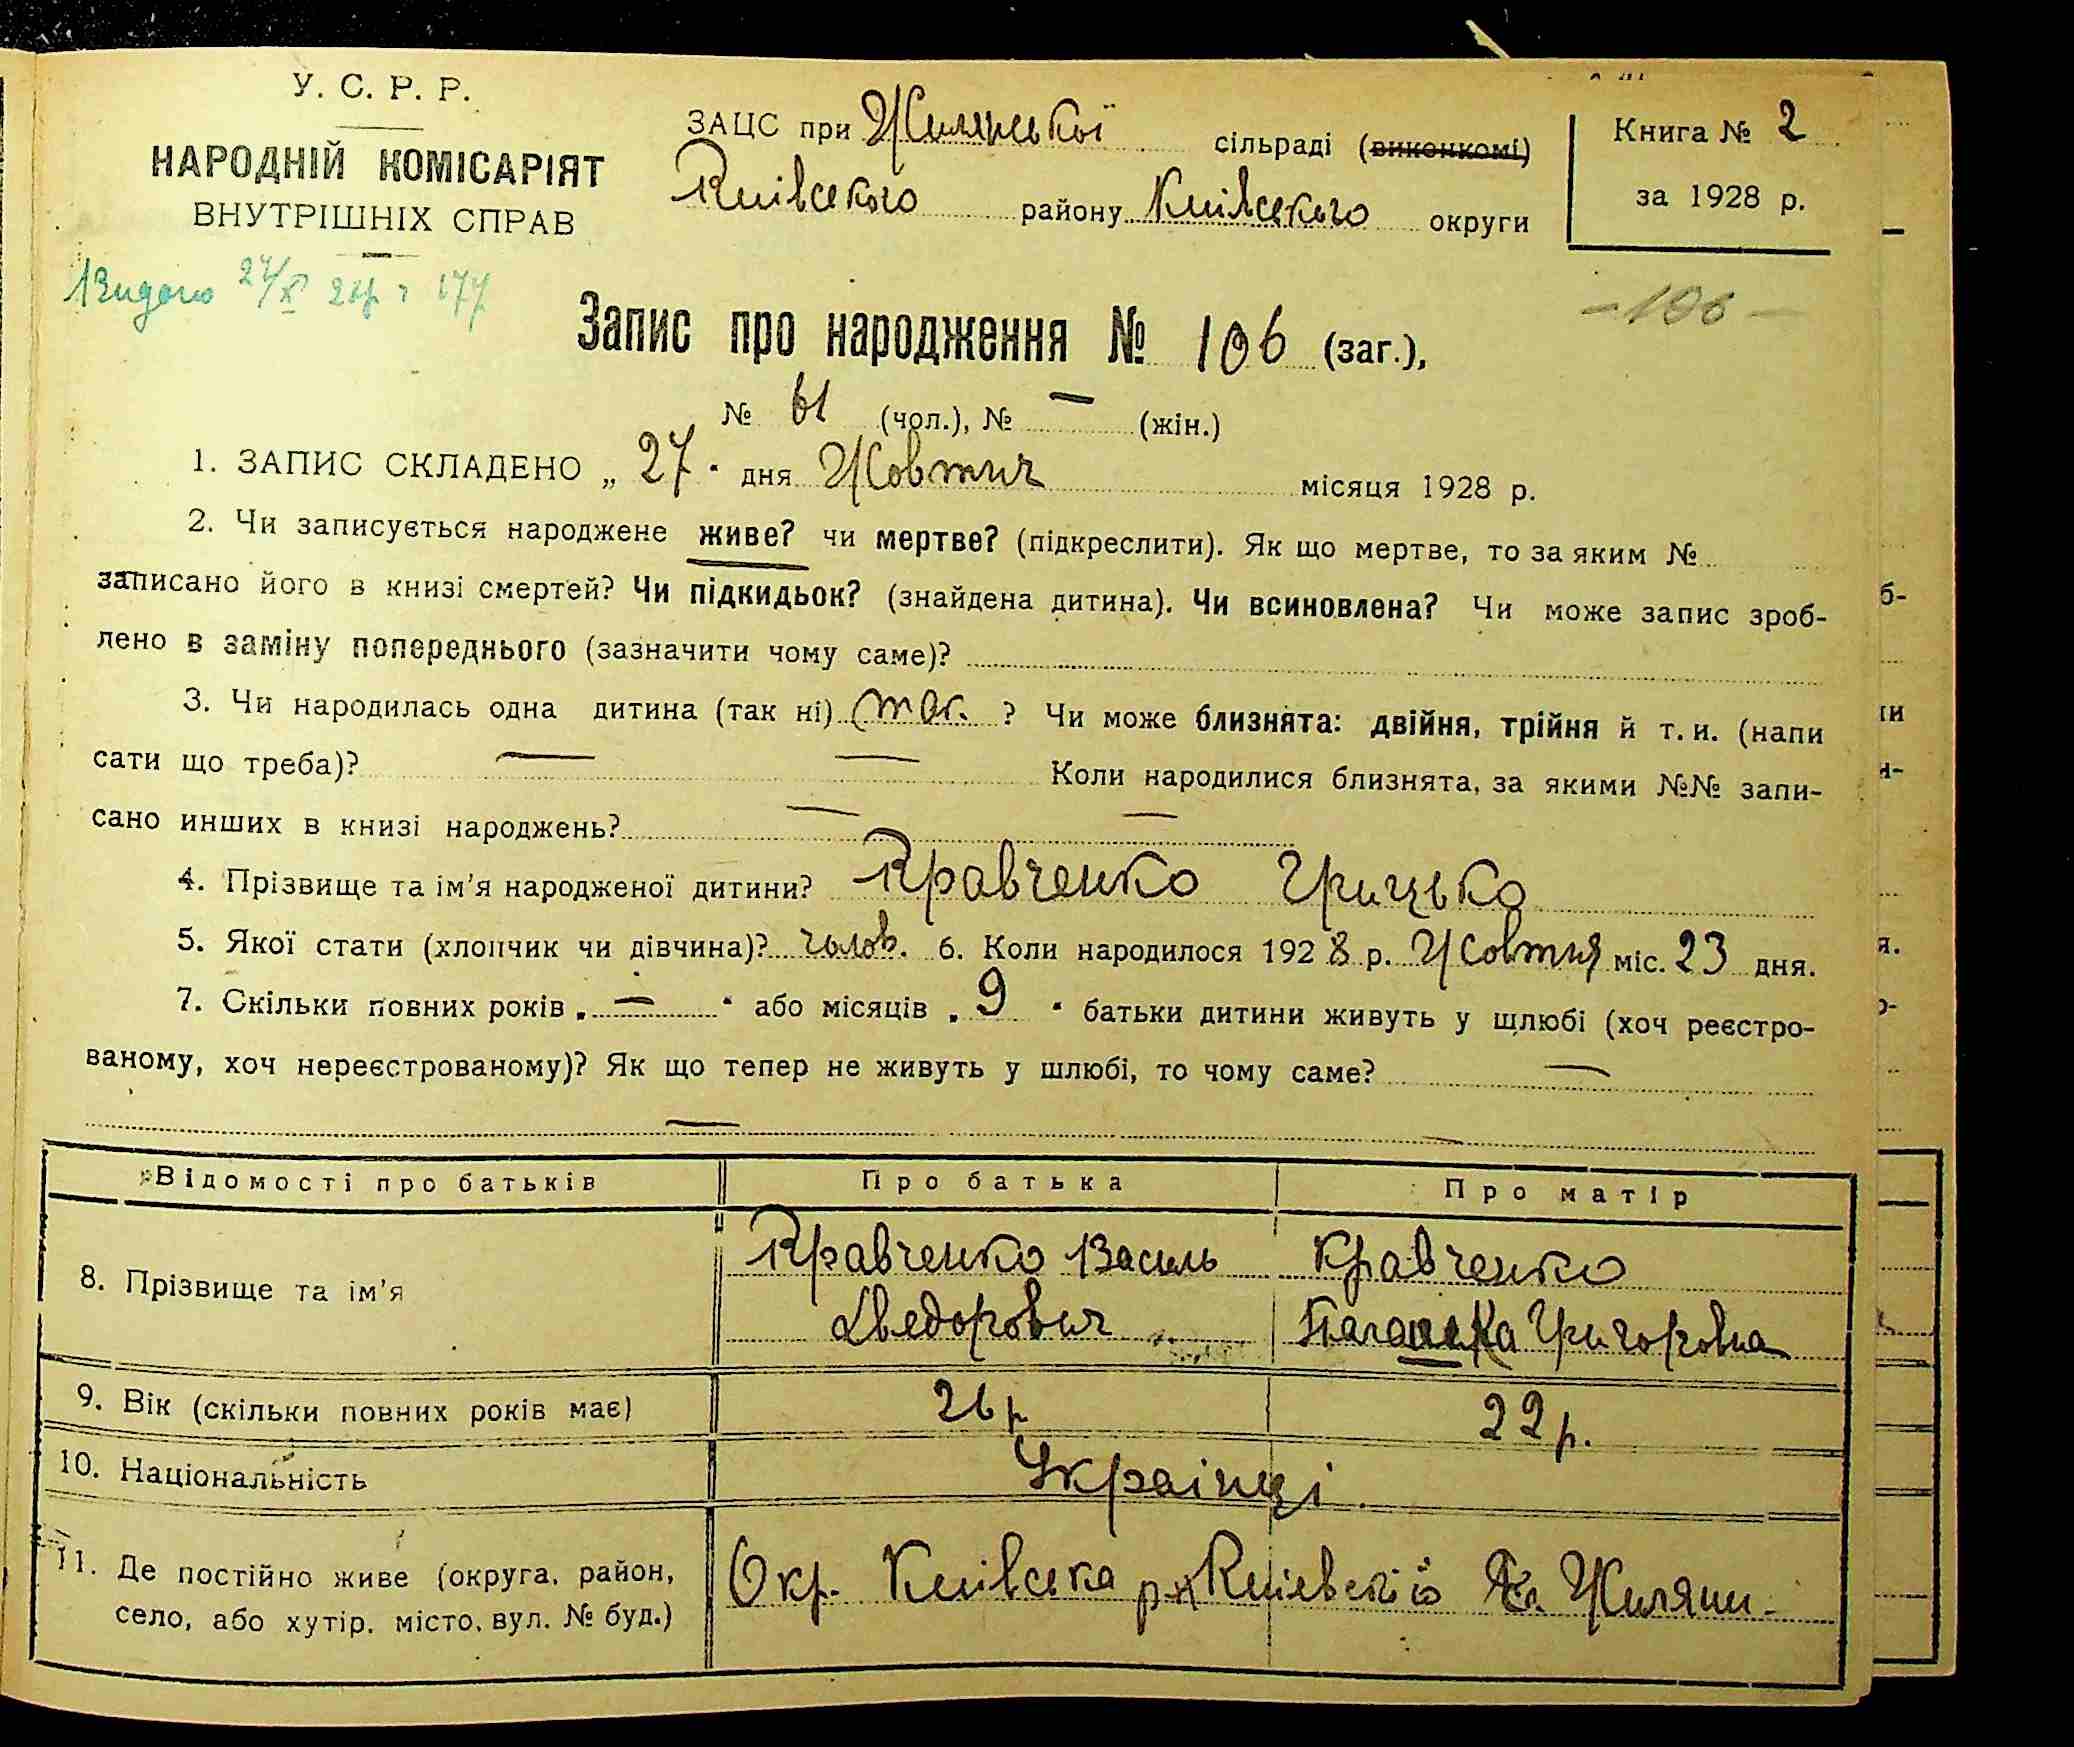 У. С. Р. Р.
НАРОДНІЙ КОМІСАРІЯТ
ВНУТРІШНІХ СПРАВ
ЗАЦС при Жилянської сільраді (виконкомі)
Київського району Київського округи
Книга № 2
за 1928 р.
Видано 27/X 28р 177
Запис про народження № 106 (заг.),
-106-
№ 61 (чол.), № — (жін.)
1. ЗАПИС СКЛАДЕНО „ 27 " дня Жовтня місяця 1928 р.
2. Чи записується народжене живе? чи мертве? (підкреслити). Як що мертве, то за яким №
записано його в книзі смертей? Чи підкидьок? (знайдена дитина). Чи всиновлена? Чи може запис зроб-
лено в заміну попереднього (зазначити чому саме)?
3. Чи народилась одна дитина (так ні) так. ? Чи може близнята: двійня, трійня й т. и. (напи
сати що треба)? — — Коли народилися близнята, за якими №№ запи-
сано инших в книзі народжень? — —
4. Прізвище та ім'я народженої дитини? Кравченко Грицько
5. Якої стати (хлопчик чи дівчина)? чолов. 6. Коли народилося 1928 р. Жовтня міс. 23 дня.
7. Скільки повних років „ — " або місяців „ 9 " батьки дитини живуть у шлюбі (хоч реєстро-
ваному, хоч нереєстрованому)? Як що тепер не живуть у шлюбі, то чому саме? —
—
Відомості про батьків Про батька Про матір
8. Прізвище та ім'я Кравченко Василь Кравченко
Хведорович Григоровна
9. Вік (скільки повних років має) 26 р 22 р.
10. Національність Українці.
11. Де постійно живе (округа, район, Окр. Київська р-н Київский Жиляни.
село, або хутір. місто, вул. № буд.)